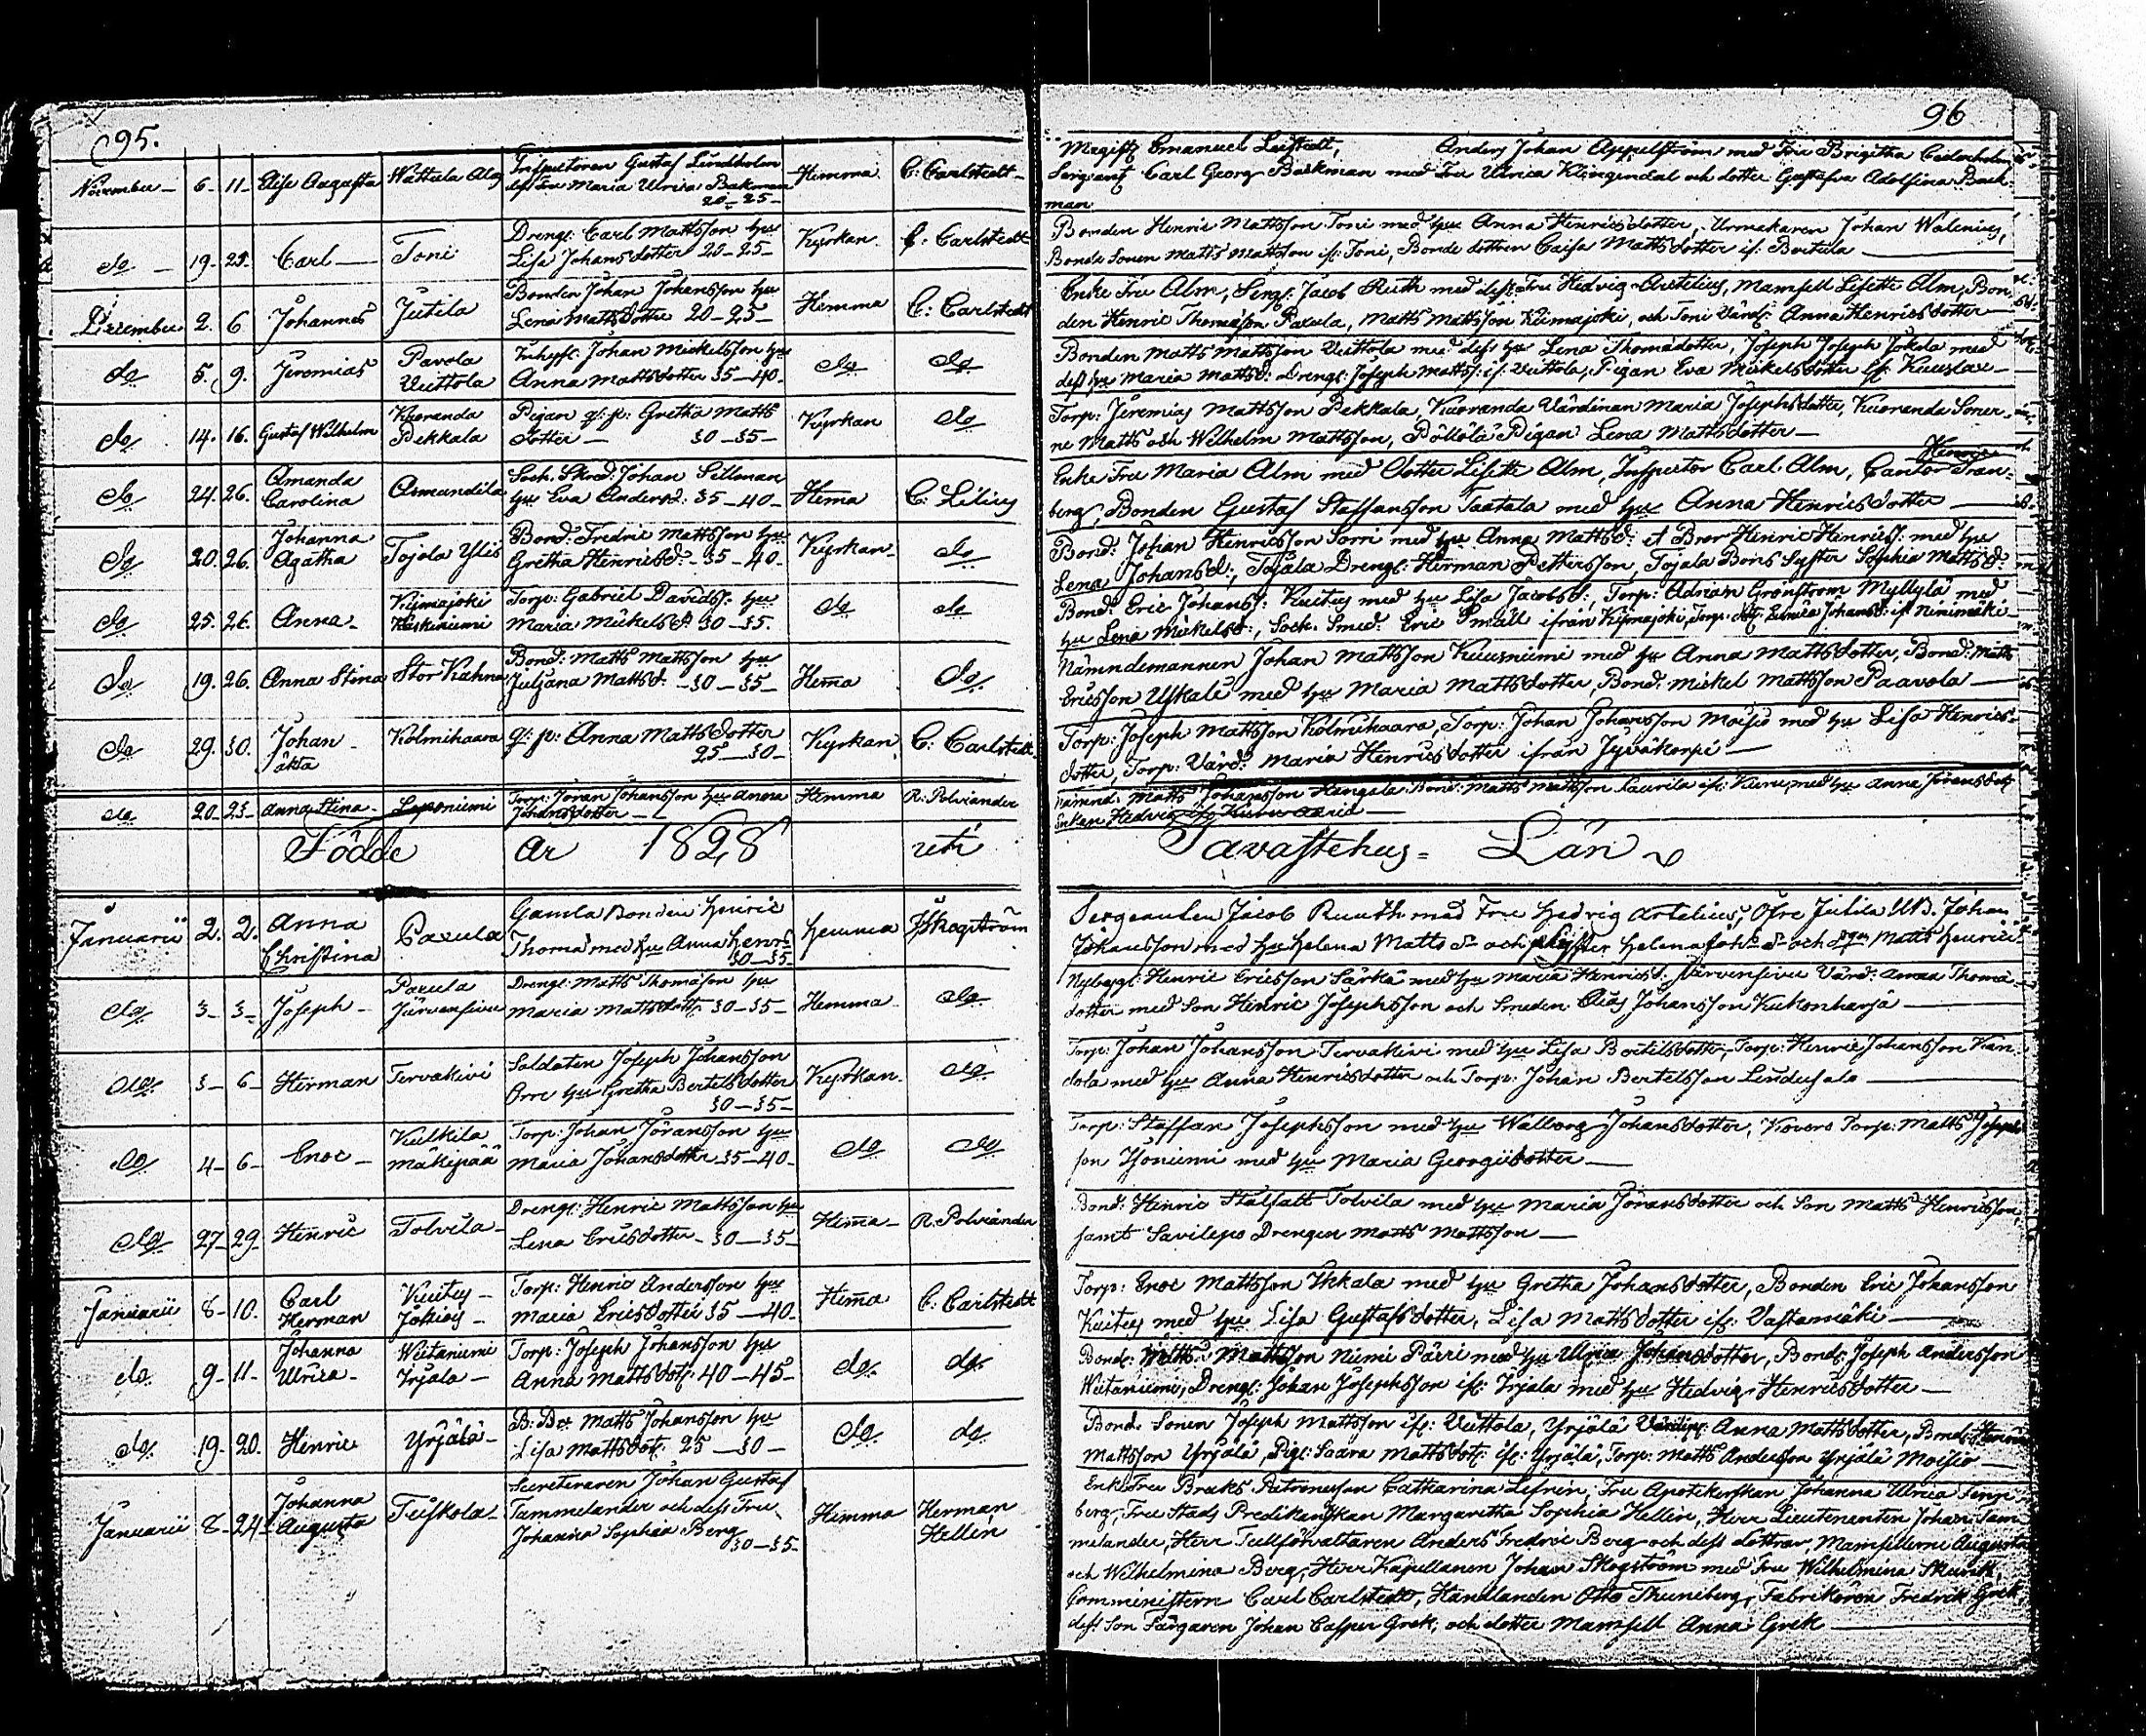 95.
November 6 11 Elise Augusta Wattula Alag Inspectoren Gustaf Lundholm Hemma C: Carlstedt
Fru Maria Ulrica Bakman
20-25
do 19 25 Carl Toni Dreng: Carl Mattsson hu Kyrkan C: Carlstedt
Lisa Johans dotter 20-25
December 2 6 Johannes Jutila Bonden Johan Johansson hu Hemma C: Carlstedt
Lena Matts dotter 20-25
do 5. 9. Jeremias Pavola Inhys: Johan Mickelsson hu do do
Uuttola Anna Matts dotter 35-40
do 14. 16. Gustaf Wilhelm Kuoranda Pigan Gretha Matts Kyrkan do
Pekkala dotter 30-35
do 24. 26. Amanda Asmundila Sock. Skrd: Johan Sellman Hem̄a C: Lilius
Carolina hu Eva Andersd: 35-40
do 20. 26. Johanna Tojola Ylis Bond: Fredric Mattsson hu Kyrkan do
Agatha Gretha Henricsd: 35-40
do 25. 26. Anna Kijmajoki Torp: Gabriel Davids: hu do do
Maria Mickelsd: 30-35.
do 19. 26. Anna Stina Stor Kahna Bond: Matts Mattsson hu Hem̄a do
Juljana Mattsd: 30-35
do 29. 30. Johan Kolmihaara Anna Matts dotter Kyrkan C: Carlstedt
äkta 25-30
do 20 23 Anna Stina Leponiemi Torp: Jöran Johansson hu Anna Hemma R: Polviander
Johans dotter
Födde år 1828 uti
Januarii 2. 2. Anna Paxula Gamla Bonden Henric Hemma J Skogström
Christina Thomas med hu Anna Henrsd
30-35
do 3 3 Joseph Paxula Dreng: Matts Thomasson hu Hemma do
Järvensivu Maria Matts dottr 30-35
do 3 6 Herman Tervakivi Soldaten Joseph Johansson Kyrkan do
Orre hu Gretha Bertels dotter
30-35
do 4 6 Enoc Kulkila Torp: Johan Jöransson hu do do
Mäkipää Maria Johans dotter 35-40
do 27 29 Henric Tolvila Dreng: Henric Mattsson hu Hem̄a R. Polviander
Lena Erics dotter 30-35
Januarii 8 10. Carl Kuitus Torp: Henric Andersson hu Hem̄a C: Carlstedt
Herman Jokioy Maria Erics dotter 35-40
do 9 11 Johanna Wiitaniemi Torp: Joseph Johansson hu do do
Ulrica Yrjala Anna Matts dotr: 40-45
do 19 20. Henric Yrjälä Matts Johansson hu do do
Lisa Matts dotr: 25-30
Januarii 8 24 Johanna Teiskola Secreteraren Johan Gustaf Hemma Herman
Augusta Tammelander och dess Fru Hellén
Johanna Sophia Berg
30-35
96
Magistr Emanuel Anders Johan Appelström med Fru Brigitha Cederholm
Sergeant Carl Georg Backman med Fru Ulrica Klingendal och dotter Gustafva Adolfina Back-
man
Bonden Henric Mattsson Toni med hu Anna Henrics dotter, Urmakaren Johan Walenius,
Bonde Sonen Matts Mattsson if: Toni, Bonde dottren Caisa Matts dotter if: Bertula
Enke Fru Alm, Serg: Jacob Ruth med dess Fru Hedvig Artelius, Mamsell Lisette Alm, Bon-
den Henric Thomasson Paxula, Matts Mattsson Kiimajoki, och Toni Värds: Anna Henrics dotter
Bonden Matts Mattsson Uuttola med dess hu Lena Thomas dotter, Joseph Joseph Jokela med
dess hu Maria Mattsd: Dreng: Joseph Matts: if: Uuttola, Pigan Eva Mickels dotter if: Kuuslax
Torp: Jeremias Mattsson Pekkala, Kuoranda Värdinan Maria Josephs dotter, Kuoranda Söner-
ne Matts och Wilhelm Mattsson, Pölkölä Pigan Lena Matts dotter
Enke Fru Maria Alm med dotter Lisette Alm, Inspector Carl Alm, Cantor Fran-
berg, Bonden Gustaf Staffansson Taatala med hu Anna Henrics dotter
Bond: Johan Henricsson Sorri med hu Anna Mattsd: et Bror Henric Henrics: med hu
Lena Johansd:, Tojala Dreng: Herman Pettersson, Tojala Bons Syster Sophia Mattsd:
Bond: Eric Johans: Kuitus med hu Lisa Jacobsd:, Torp: Adrian Grönstrom Myllylä med
hu Lena Mickelsd:, Sock. Smed: Eric Småll ifrån Kijmajoki, Torp: Johansd: if: Ninimäki
Nämndemannen Johan Mattsson Kuusniemi med hu Anna Matts dotter, Bond: Matts
Ericsson Uskali med hu Maria Matts dotter, Bond: Mickel Mattsson Paavola
Torp: Joseph Mattsson Kolmihaara, Torp: Johan Johansson Moisio med hu Lisa Henrics-
dotter, Torp: Värd: Maria Henrics dotter ifrån Jyväkorpi
Nämnd: Matts Johansson Hangala. Bond: Matts Mattsson Laurila if: Kuru med hu Anna Jörans dotr
Enkan Hedvig if:
Tavastehus Län
Sergeanten Jacob Ruuth med Fru Hedvig Artelius, Öfre Jutila Johan
Johansson med hu Helena Matts dr och Syster Helena Johs dr och Matts Henrics
Nybygg: Henric Ericsson Särkä med hu Maria Henricsd: Järvensivu Värd: Anna Thomæ
dotter med Son Henric Josephsson och Smeden Elias Johansson Kukonharja
Torp: Johan Johansson Tervakivi med hu Lisa Bertils dotter, Torp: Henric Johansson Kan-
dola med hu Anna Henrics dotter och Torp: Johan Bertelsson Lindusalo
Torp: Staffan Josephsson med hu Walborg Johans dotter, Kovero Torp: Matts Josephs
son Ijoniemi med hu Maria Georgii dotter
Bond: Henric Stålfatt Tolvila med hu Maria Jörans dotter och Son Matts Henricsson,
samt Savilepo Drengen Matts Mattsson
Torp: Enoc Mattsson Ikkala med hu Gretha Johans dotter, Bonden Eric Johansson
Kuitus med hu Lisa Gustafs dotter, Lisa Matts dotter if: Vastamäki
Bond: Matts Mattsson Niemi Pärri med hu Ulrica Johans dotter, Bond: Joseph Andersson
Wiitaniemi, Dreng: Johan Josephsson if: Yrjala med hu Hedvig Henrics dotter
Bond. Sonen Joseph Mattsson if: Uuttola, Yrjälä Värdin: Anna Matts dotter, Bond: Henric
Mattsson Yrjälä, Pig: Saara Matts dotr: if: Yrjälä, Torp: Matts Andersson Yrjälä Moisio
Enke Fru Bruks Patronessan Catharina Lefrén, Fru Apotekerskan Johanna Ulrica
berg, Fru Stads Predikanskan Margaretha Sophia Hellén, Herr Lieutenenten Johan Tam-
melander, Herr Tullförvaltaren Anders Fredric Berg och dess dottrar, Mamsellerne Augusta
och Wilhelmina Berg, Herr Kapellanen Johan Skogström med Fru Wilhelmina
Comministern Carl Carlstedt, Handlanden Otto Thuneberg, Fabrikören Fredrik Grek
dess Son Färgaren Johan Casper Grek, och dotter Mamsell Anna Grek